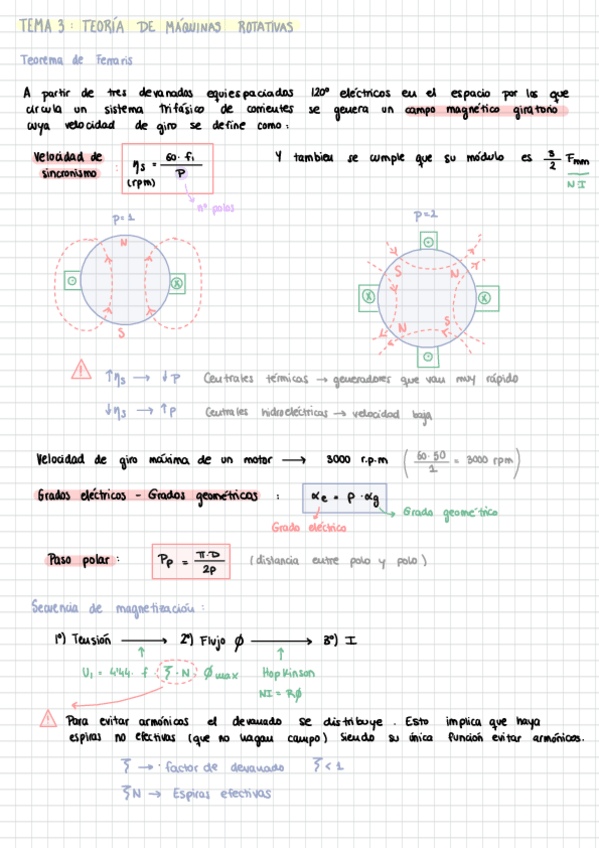 TEMA 3: TEORÍA DE MÁQUINAS ROTATIVAS
Teorema de Ferraris
A partir de tres devanados equiespaciados 120º eléctricos en el espacio por los que
circula un sistema trifásico de corrientes se genera un campo magnético giratorio
cuya velocidad de giro se define como:
Velocidad de sincronismo : ηs = 60·f1 / P (rpm)
Y también se cumple que su módulo es 3/2 Fmm
N·I
nº polos
p=1
p=2
N
S
S
N
N
S
↑ηs → ↓P Centrales térmicas → generadores que van muy rápido
↓ηs → ↑P Centrales hidroeléctricas → velocidad baja
Velocidad de giro máxima de un motor → 3000 r.p.m (60·50 / 1 = 3000 rpm)
Grados eléctricos - Grados geométricos : αe = P·αg
Grado geométrico
Grado eléctrico
Paso polar : Pp = π·D / 2p (distancia entre polo y polo)
Secuencia de magnetización:
1º) Tensión → 2º) Flujo ϕ → 3º) I
U1 = 4'44· f· ξ·N· ϕmax
Hopkinson
NI = Rϕ
Para evitar armónicos el devanado se distribuye. Esto implica que haya
espiras no efectivas (que no hagan campo) siendo su única función evitar armónicos.
ξ → factor de devanado ξ<1
ξN → Espiras efectivas